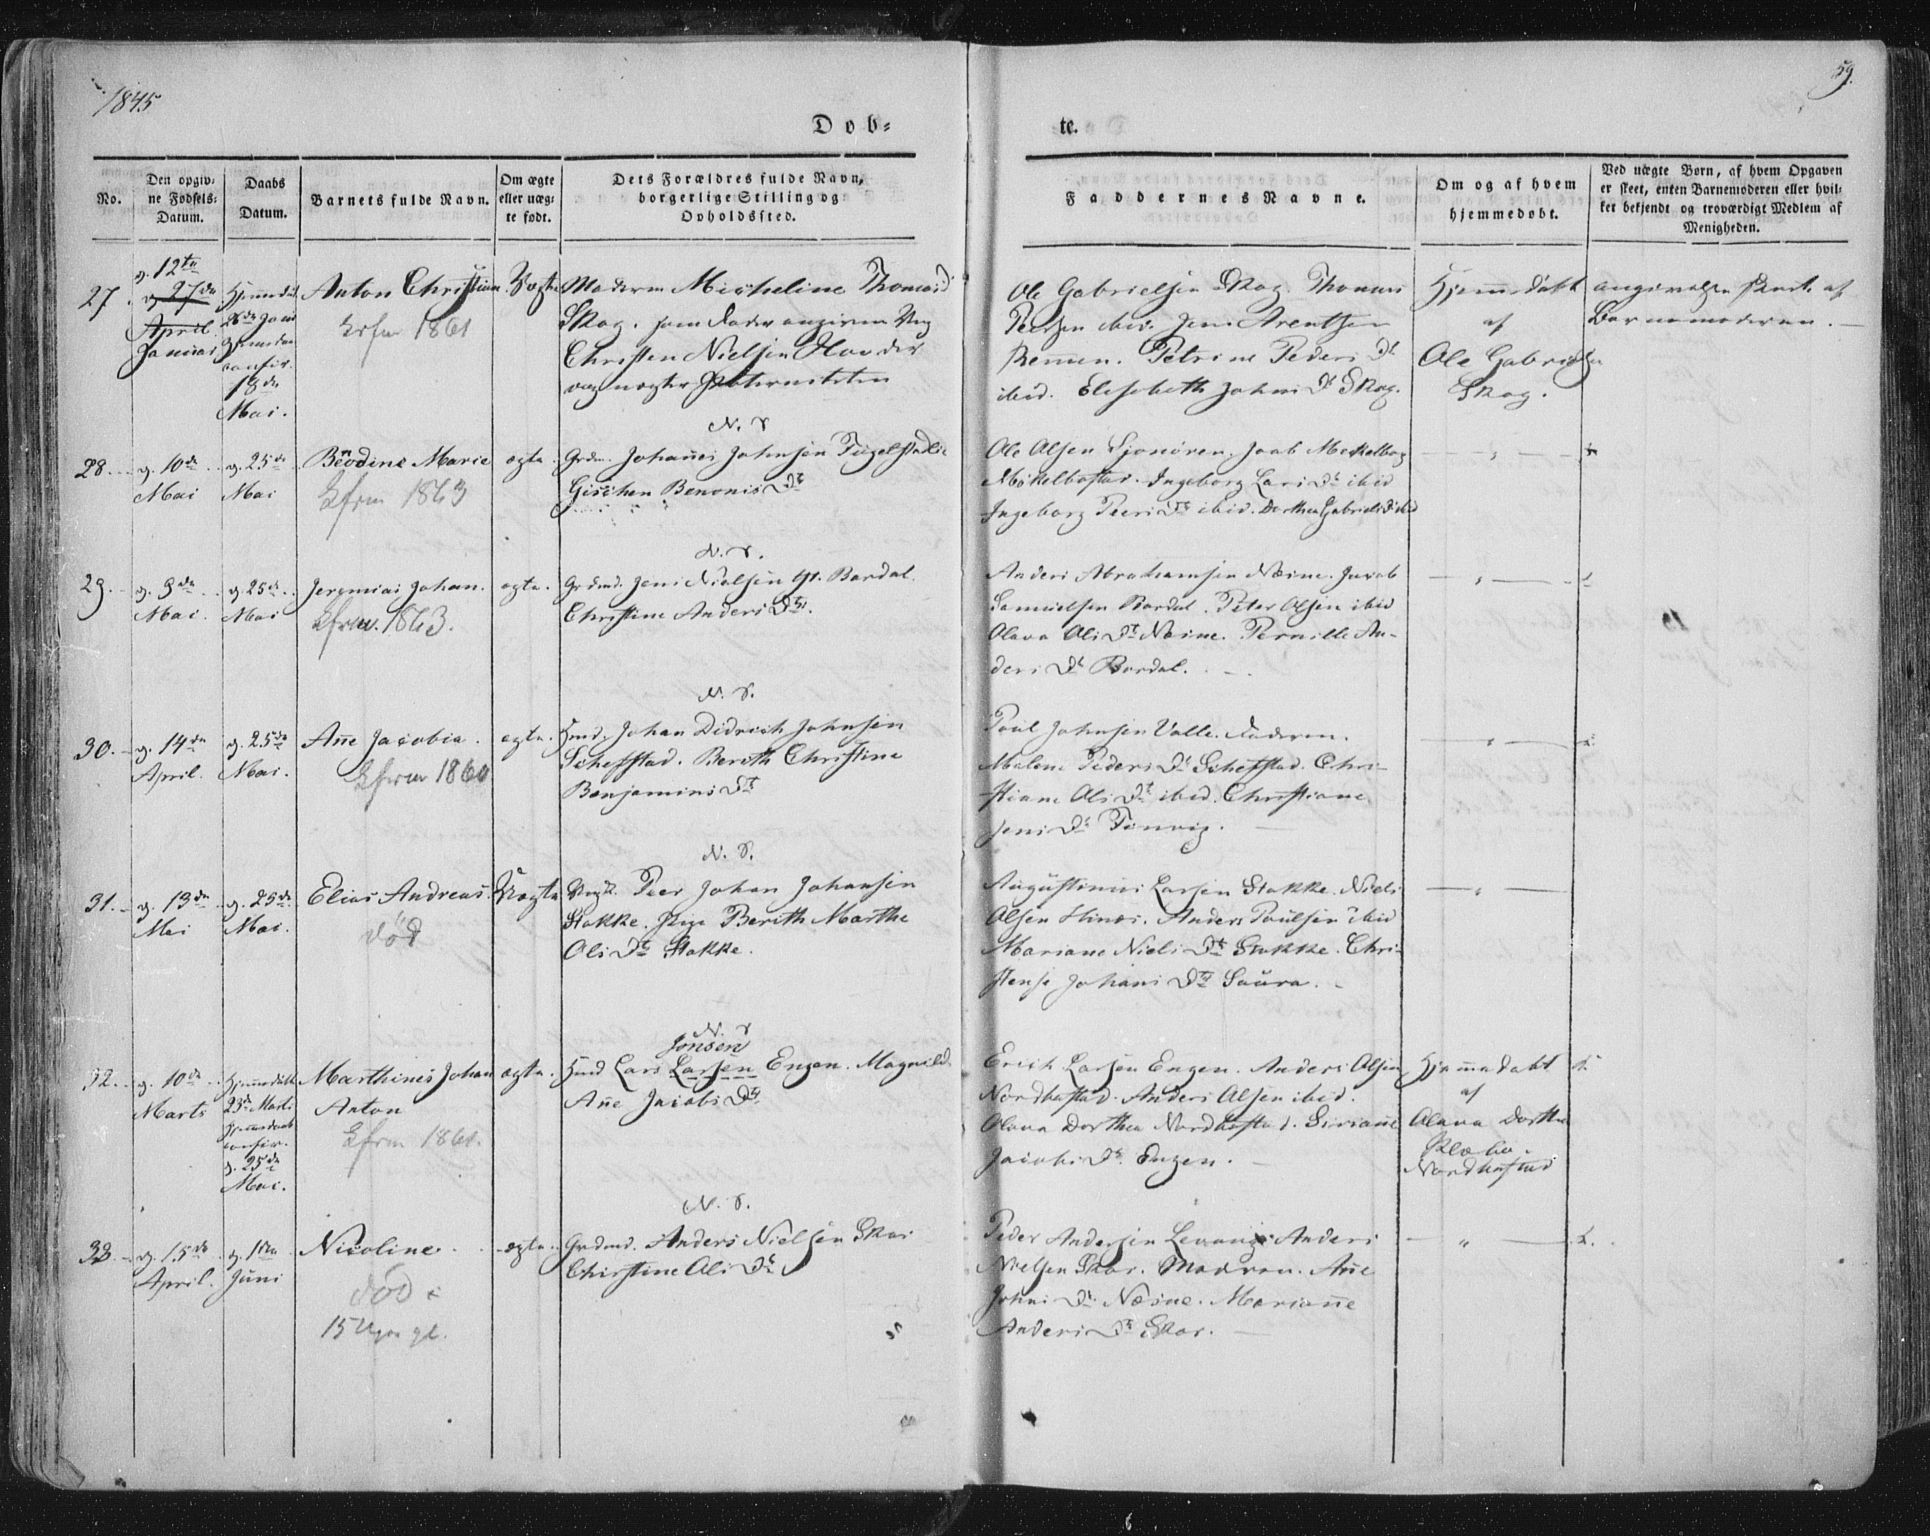 1845
59.
Dob-
te.
No.
Den opgiv-
ne Fødsels-
Datum.
Daabs
Datum.
Barnets fulde Navn.
Om ægte
eller uæg-
te født.
Dets Forældres fulde Navn,
borgerlige Stilling og
Opholdssted.
Faddernes Navne.
Om og af hvem
hjemmedøbt.
Ved uægte Børn, af hvem Opgaven
er skeet, enten Barnemoderen eller hvil-
ket bekjendt og troværdigt Medlem af
Menigheden.
27.
d. 12te
d. 27de
April
Januar
Hjemmedøbt
26de Janr
18de
Mai.
Anton Christian
Kfrm 1861
Uægte
Moderen Micheline Thomasd
Skog. som Fader angiven Ung
Christen Nielsen Hov der
Paterniteten
Ole Gabrielsen Skog. Thomas
Pedersen ibid. Jens Arentsen
Remmen. Petrine Peders Dt
ibid. Elisabeth Johns Dt Skog.
Hjemmedøbt
af
Ole Gabrielsen
Skog.
angivelsen skeet af
Barnemoderen.
28.
d. 10de
Mai
d. 25de
Mai
Benodine Marie
Kfrm 1863
ægte
N. S.
Grdm. Johannes Johnsen
Benonis Dt
Ole Olsen Sjonøren. Jacob Mækelborg
Ingeborg Lars Dt ibid
Ingeborg Peers Dt ibid. Dorthea Gabriels D ibid
29.
d. 9de
Mai.
d. 25de
Mai
Jeremias Johan.
Kfrm. 1863.
ægte.
N. S.
Grdmd. Jens Nielsen Bardal.
Christine Anders Dt.
Anders Abrahamsen Næsne. Jacob
Samuelsen Bardal. Peter Olsen ibid
Olava Ols Dt Næsne. Pernille An-
ders Dt Bardal.
30.
d. 14de
April.
d. 25de
Mai.
Ane Jacobia.
Kfrm 1860
ægte.
N. S.
Hmd. Johan Didrich Johnsen
Berith Christine
Benjamins Dt
Poul Johnsen Valle. Faderen.
Malene Peders Dt Chri-
stiane Ols Dt ibid. Christiane
Jens Dt
31.
d. 13de
Mai
d. 25de
Mai.
Elias Andreas.
død
Uægte
N. S.
Ungk. Peer Johan Johansen
Stokke. Pige Berith Marthe
Ols Dt Stokke.
Augustinus Larsen Stokke. Niels
Olsen Anders Paulsen ibid
Mariane Niels Dt Stokke. Chri-
stense Johans Dt Saura.
32.
d. 10de
Marts
Hjemmedøbt
23de Marts
d. 25de
Mai.
Marthines Johan
Anton
Kfrm 1861.
ægte.
N. S.
Jonsen
Hmd Lars Larsen Engen. Magnild
Ane Jacobs Dt
Erich Larsen Engen. Anders Olsen
Nordhustad. Anders Olsen ibid.
Olava Dorthea Nordhustad. Siriane
Jacobs Dt. Engen.
Hjemmedøbt
af
Olava Dorthea
Klæbo.
Nordhustad
33.
d. 15de
April.
d. 1ste
Juni
Nicoline
død
15 Uger gl.
ægte.
N. S.
Grdmd. Anders Nielsen Skar
Christine Ols Dt
Peder Andersen Levang. Anders
Nielsen Skar. Moderen. Ane
Johns Dt Næsne. Mariane
Anders Dt Skar.